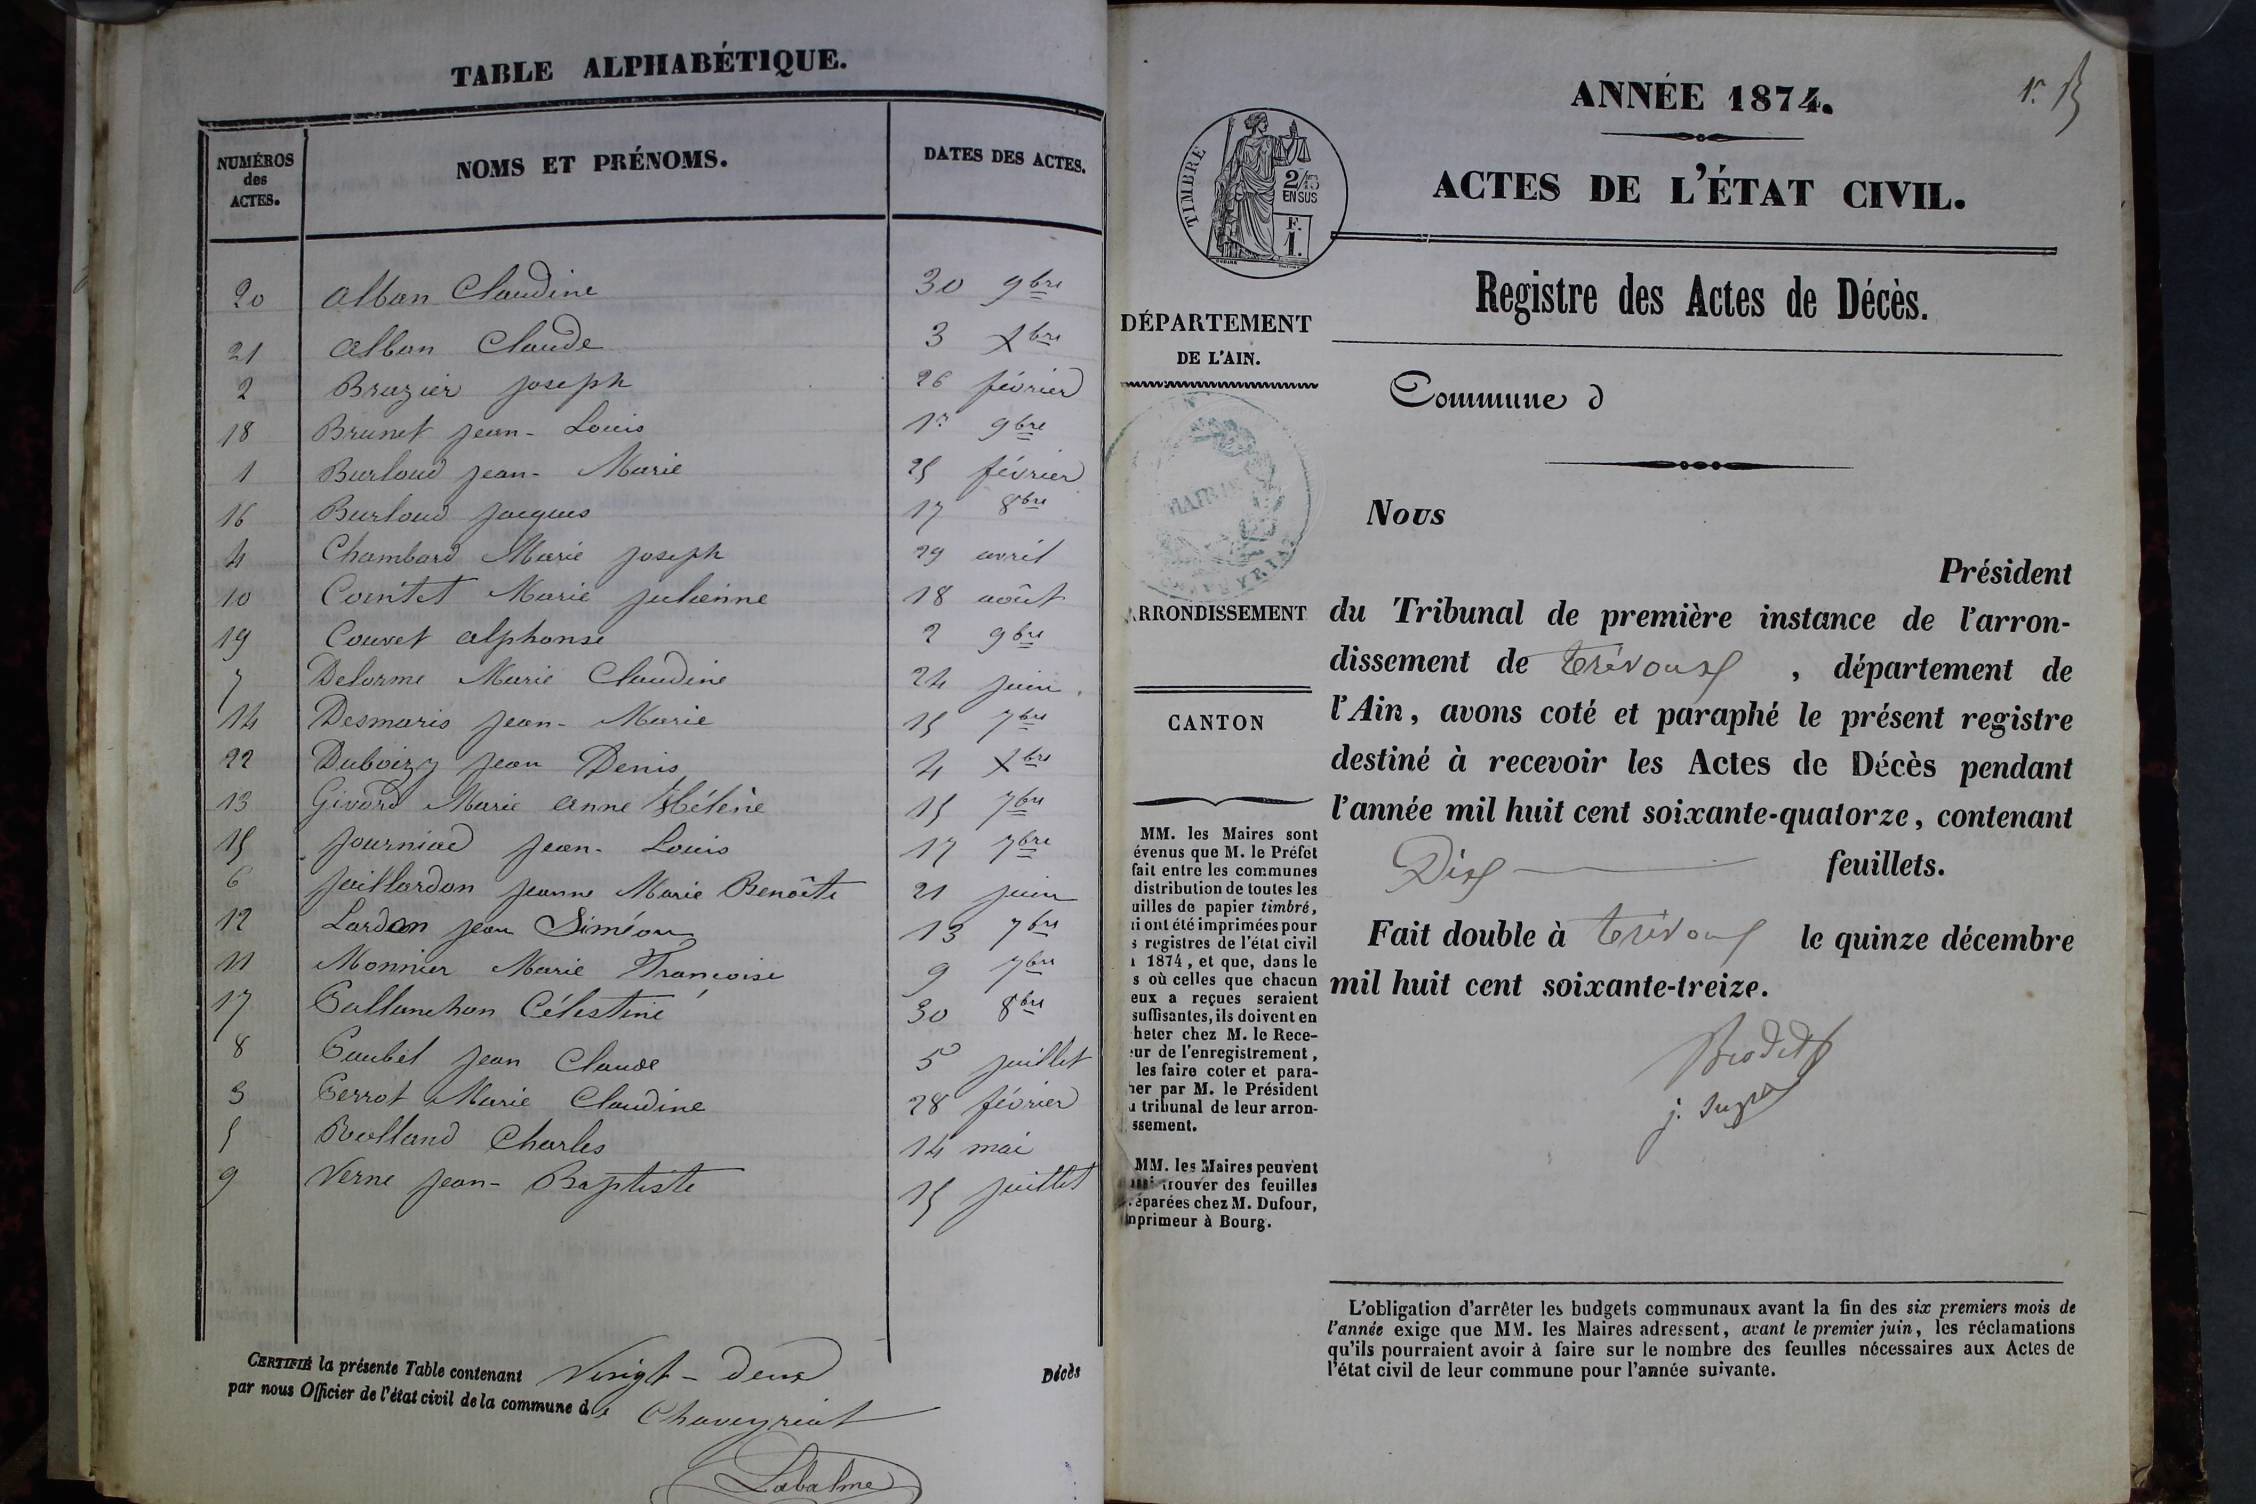 TABLE ALPHABÉTIQUE.
NUMÉROS des ACTES. NOMS ET PRÉNOMS. DATES DES ACTES.
20 Alban Claudine 30 9bre
21 Alban Claude 3 Xbre
2 Brazier Joseph 26 février
18 Brunet Jean-Louis 1er 9bre
1 Burloud Jean-Marie 25 février
16 Burloud Jacques 17 8bre
4 Chambard Marie Joseph 29 avril
10 Cointet Marie Julienne 18 août
19 Couvet Alphonse 2 9bre
7 Delorme Marie Claudine 24 juin
14 Desmaris Jean-Marie 15 7bre
22 Duboizy Jean Denis 4 Xbre
13 Givord Marie Anne Hélène 15 7bre
15 Journiad Jean-Louis 17 7bre
6 Jaillardon Jeanne Marie Benoîte 21 juin
12 Lardon Jean Siméon 13 7bre
11 Monnier Marie Françoise 9 7bre
17 Pallanchon Célestine 30 8bre
8 Paubel Jean Claude 5 juillet
3 Perrot Marie Claudine 28 février
5 Rolland Charles 14 mai
9 Verne Jean-Baptiste 15 juillet
CERTIFIÉ la présente Table contenant Vingt-deux Décès
par nous Officier de l'état civil de la commune de Chaveyriat
Labalme
ANNÉE 1874.
ACTES DE L'ÉTAT CIVIL.
TIMBRE
2/10
EN SUS
F.
1.
Registre des Actes de Décès.
DÉPARTEMENT
DE L'AIN.
MAIRIE
Commune d
Nous
Président
ARRONDISSEMENT
du Tribunal de première instance de l'arron-
dissement de Trévoux, département de
l'Ain, avons coté et paraphé le présent registre
destiné à recevoir les Actes de Décès pendant
l'année mil huit cent soixante-quatorze, contenant
Dix feuillets.
Fait double à Trévoux le quinze décembre
mil huit cent soixante-treize.
CANTON
MM. les Maires sont
évenus que M. le Préfet
fait entre les communes
distribution de toutes les
uilles de papier timbré,
i ont été imprimées pour
s registres de l'état civil
1874, et que, dans le
s où celles que chacun
eux a reçues seraient
suffisantes, ils doivent en
heter chez M. le Rece-
ur de l'enregistrement,
les faire coter et para-
er par M. le Président
tribunal de leur arron-
ssement.
MM. les Maires peuvent
trouver des feuilles
éparées chez M. Dufour,
mprimeur à Bourg.
L'obligation d'arrêter les budgets communaux avant la fin des six premiers mois de
l'année exige que MM. les Maires adressent, avant le premier juin, les réclamations
qu'ils pourraient avoir à faire sur le nombre des feuilles nécessaires aux Actes de
l'état civil de leur commune pour l'année suivante.